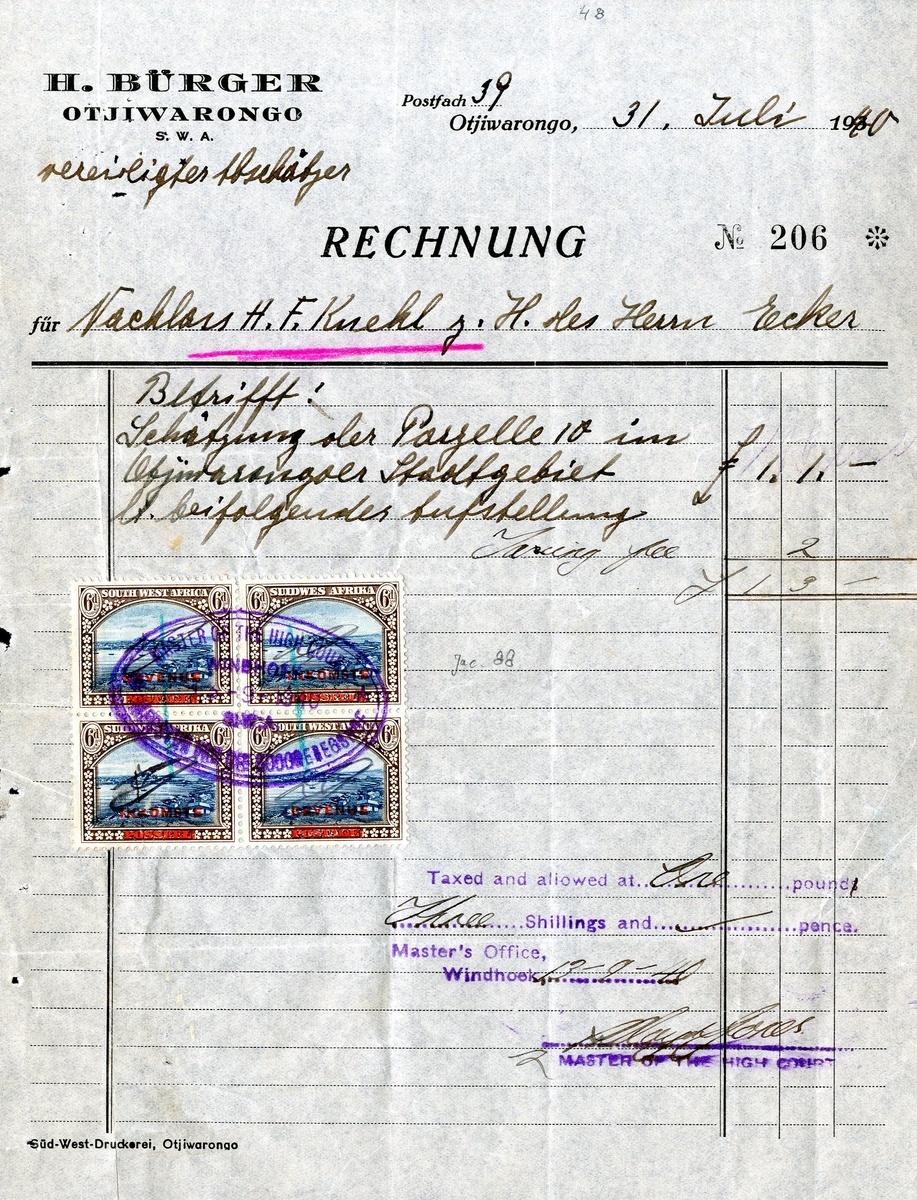 48
H. BÜRGER
OTJIWARONGO
S. W. A.
vereidigter Abschätzer
Postfach 39
Otjiwarongo, 31. Juli 1940
RECHNUNG
№ 206
für Nachlass H. F. Knehl z. H. des Herrn Ecker
Betrifft:
Schätzung der Parzelle 10 im
Otjiwarongoer Stadtgebiet £ 1. 1. –
lt. beifolgender Aufstellung
Taxing fee 2
£ 1 3 –
6d SOUTH WEST AFRICA 6d
REVENUE
POSTAGE
6d SUIDWES AFRIKA 6d
INKOMSTE
POSSEEL
6d SUIDWES AFRIKA 6d
INKOMSTE
POSSEEL
6d SOUTH WEST AFRICA 6d
REVENUE
POSTAGE
MASTER OF THE HIGH COURT
WINDHOEK
S.W.A.
Taxed and allowed at One pound
Three Shillings and pence.
Master's Office,
Windhoek 13-9-40
MASTER OF THE HIGH COURT
Süd-West-Druckerei, Otjiwarongo